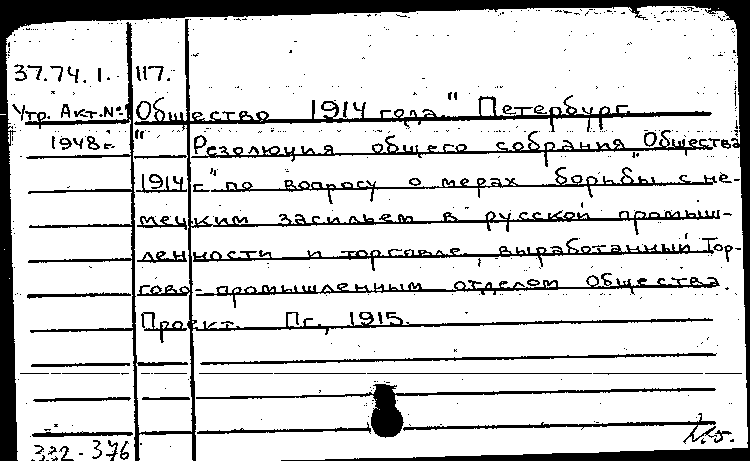 37.74.1. 117.
Утр. Акт.№1 Общество 1914 года." Петербург.
1948г. " Резолюция общего собрания „Общества
1914 г." по вопросу о мерах борьбы с не-
мецким засильем в русской промыш-
ленности и торговле, выработанный Тор-
гово-промышленным отделом Общества.
Проект. Пг., 1915.
332-376